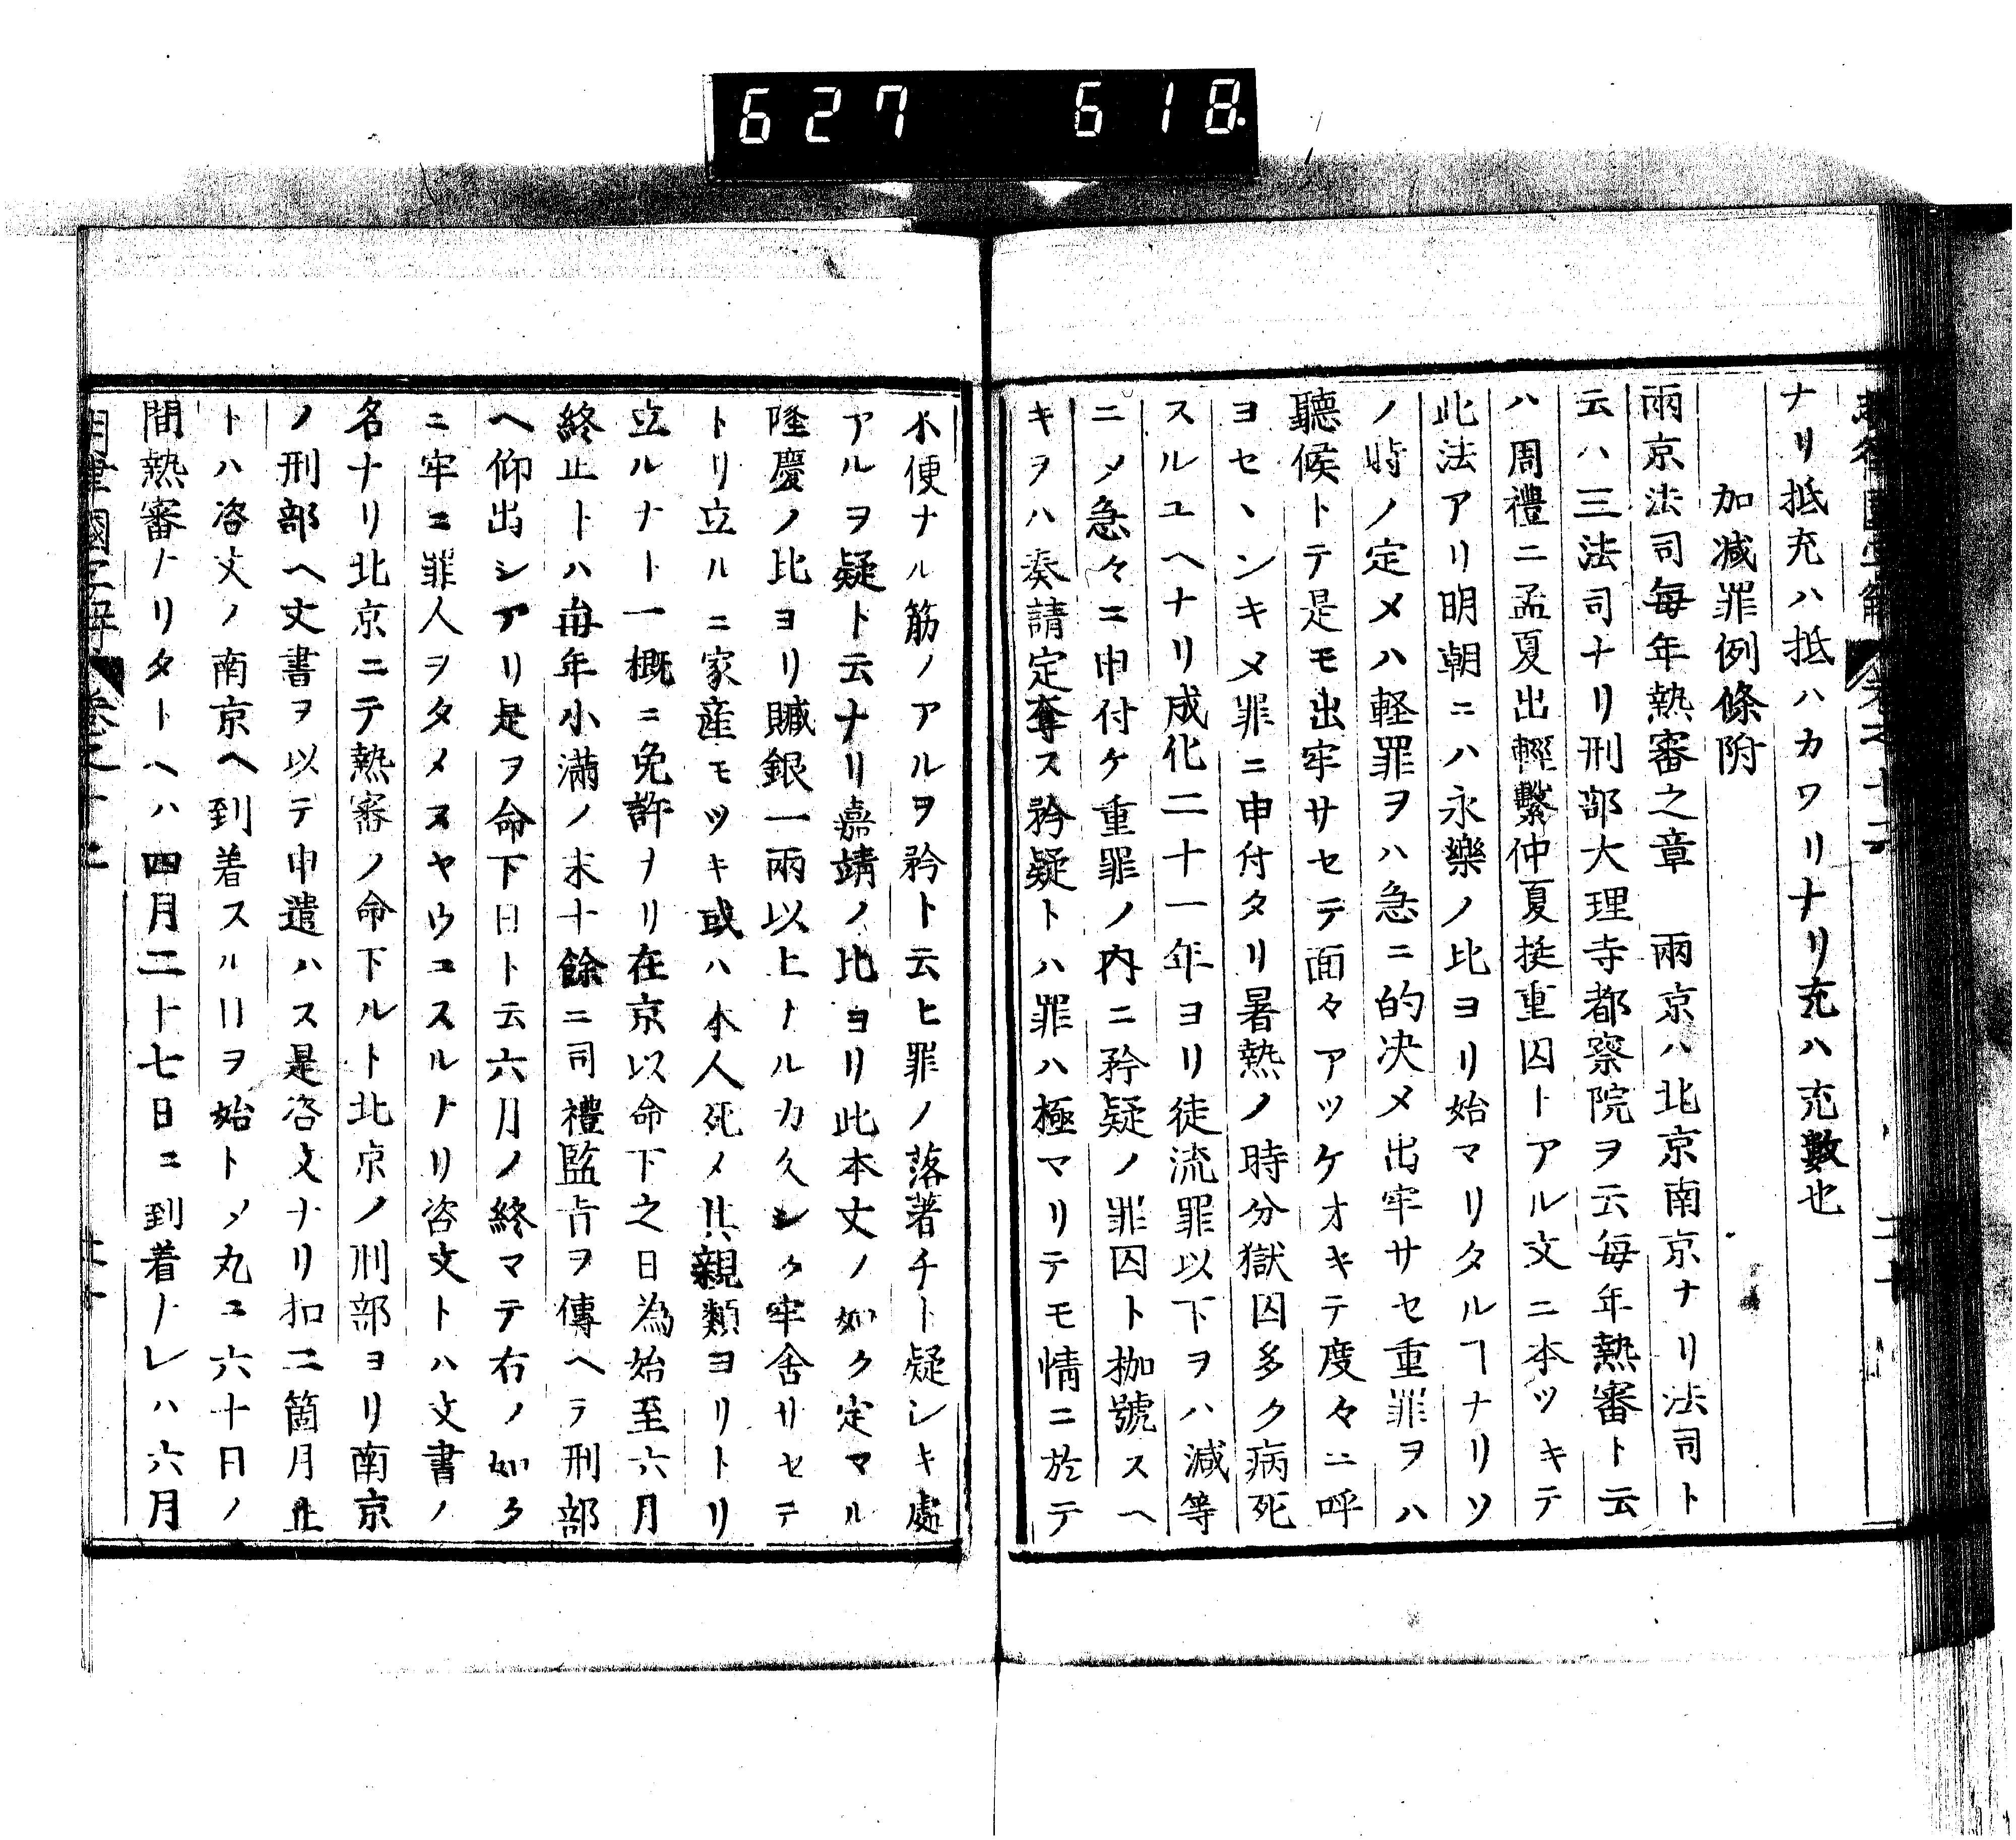 627 618
ナリ抵充ハ抵ハカワリナリ充ハ充數也
加減罪例條附
兩京法司毎年熱審之章 兩京ハ北京南京ナリ法司ト
云ハ三法司ナリ刑部大理寺都察院ヲ云毎年熱審ト云
ハ周禮ニ孟夏出輕繫仲夏挺重囚トアル文ニ本ツキテ
此法アリ明朝ニハ永樂ノ比ヨリ始マリタルヿナリソ
ノ時ノ定メハ軽罪ヲハ急ニ的决メ出牢サセ重罪ヲハ
聽候トテ是モ出牢サセテ面々アツケオキテ度々ニ呼
ヨセヽンキメ罪ニ申付タリ暑熱ノ時分獄囚多ク病死
スルユヘナリ成化二十一年ヨリ徒流罪以下ヲハ減等
ニメ急々ニ申付ケ重罪ノ内ニ矜疑ノ罪囚ト枷號スヘ
キヲハ奏請定奪ス矜疑トハ罪ハ極マリテモ情ニ於テ
不便ナル筋ノアルヲ矜ト云ヒ罪ノ落著チト疑シキ處
アルヲ疑ト云ナリ嘉靖ノ比ヨリ此本文ノ如ク定マル
隆慶ノ比ヨリ贓銀一兩以上ナルカ久シク牢舍サセテ
トリ立ルニ家産モツキ或ハ本人死メ其親類ヨリトリ
立ルナト一概ニ免許ナリ在京以命下之日為始至六月
終止トハ毎年小滿ノ末十餘ニ司禮監旨ヲ傳ヘテ刑部
ヘ仰出シアリ是ヲ命下日ト云六月ノ終マテ右ノ如ク
ニ牢ニ罪人ヲタメヌヤウニスルナリ咨文トハ文書ノ
名ナリ北京ニテ熱審ノ命下ルト北京ノ刑部ヨリ南京
ノ刑部ヘ文書ヲ以テ申遣ハス是咨文ナリ扣二箇月止
トハ咨文ノ南京ヘ到着スル日ヲ始トメ丸ニ六十日ノ
間熱審ナリタトヘハ四月二十七日ニ到着ナレハ六月